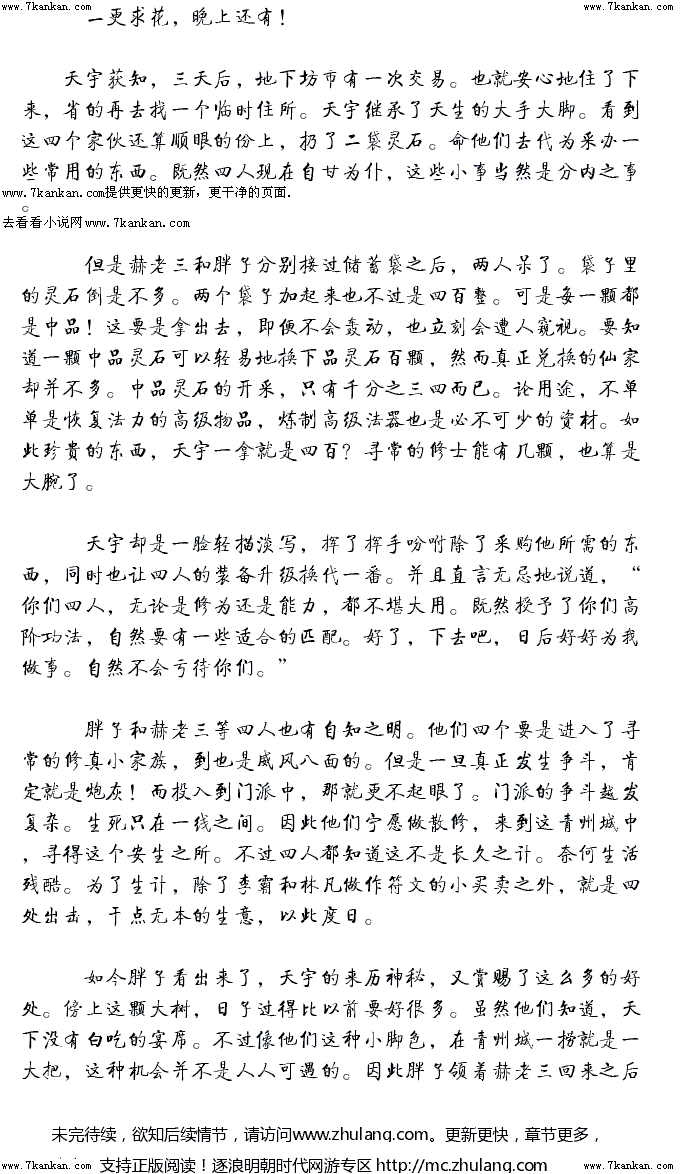 www.7kankan.com www.7kankan.com
一更求花，晚上还有！
天宇获知，三天后，地下坊市有一次交易。也就安心地住了下
来，省的再去找一个临时住所。天宇继承了天生的大手大脚。看到
这四个家伙还算顺眼的份上，扔了二袋灵石。命他们去代为采办一
些常用的东西。既然四人现在自甘为仆，这些小事当然是分内之事
www.7kankan.com提供更快的更新，更干净的页面.
。
去看看小说网www.7kankan.com
但是赫老三和胖子分别接过储蓄袋之后，两人呆了。袋子里
的灵石倒是不多。两个袋子加起来也不过是四百整。可是每一颗都
是中品！这要是拿出去，即便不会轰动，也立刻会遭人窥视。要知
道一颗中品灵石可以轻易地换下品灵石百颗，然而真正兑换的仙家
却并不多。中品灵石的开采，只有千分之三四而已。论用途，不单
单是恢复法力的高级物品，炼制高级法器也是必不可少的资材。如
此珍贵的东西，天宇一拿就是四百？寻常的修士能有几颗，也算是
大腕了。
天宇却是一脸轻描淡写，挥了挥手吩咐除了采购他所需的东
西，同时也让四人的装备升级换代一番。并且直言无忌地说道，“
你们四人，无论是修为还是能力，都不堪大用。既然授予了你们高
阶功法，自然要有一些适合的匹配。好了，下去吧，日后好好为我
做事。自然不会亏待你们。”
胖子和赫老三等四人也有自知之明。他们四个要是进入了寻
常的修真小家族，到也是威风八面的。但是一旦真正发生争斗，肯
定就是炮灰！而投入到门派中，那就更不起眼了。门派的争斗越发
复杂。生死只在一线之间。因此他们宁愿做散修，来到这青州城中
，寻得这个安生之所。不过四人都知道这不是长久之计。奈何生活
残酷。为了生计，除了李霸和林凡做作符文的小买卖之外，就是四
处出去，干点无本的生意，以此度日。
如今胖子看出来了，天宇的来历神秘，又赏赐了这么多的好
处。傍上这颗大树，日子过得比以前要好很多。虽然他们知道，天
下没有白吃的宴席。不过像他们这种小脚色，在青州城一捞就是一
大把，这种机会并不是人人可遇的。因此胖子领着赫老三回来之后
未完待续，欲知后续情节，请访问www.zhulang.com。更新更快，章节更多，
支持正版阅读！逐浪明朝时代网游专区 http://mc.zhulang.com
www.7kankan.com www.7kankan.com